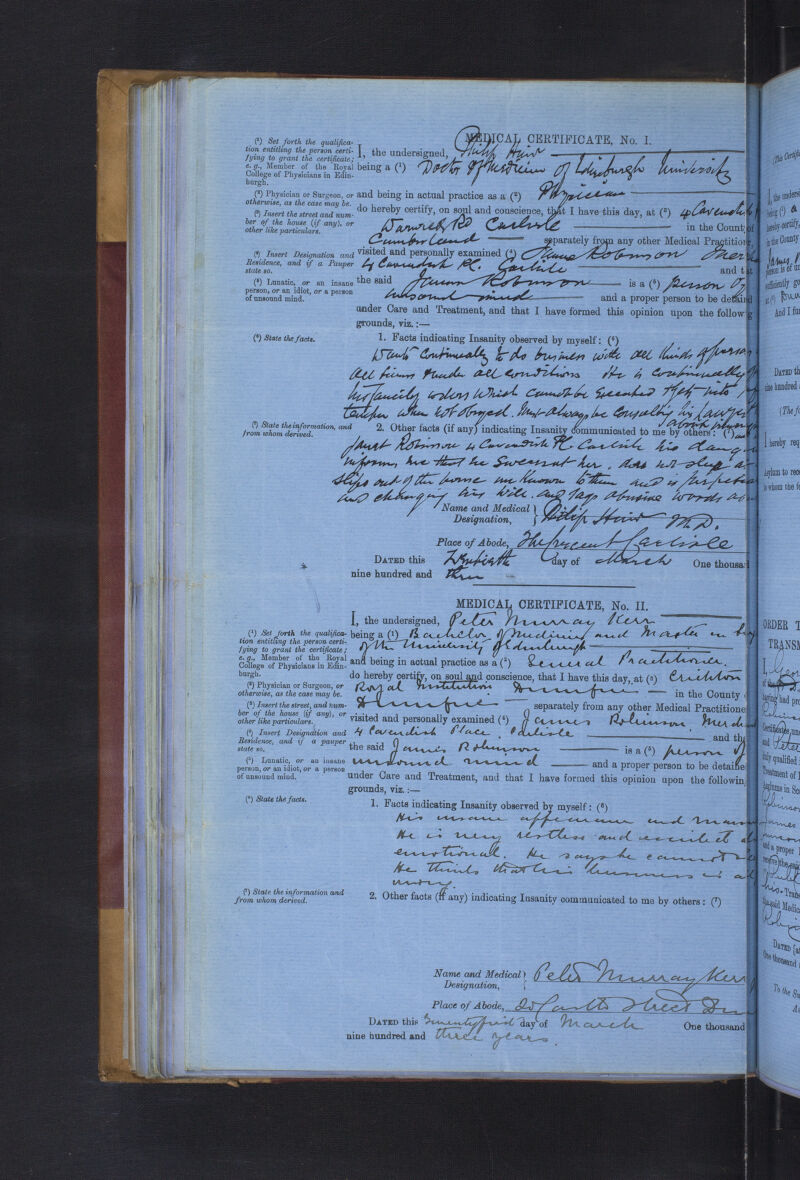 MEDICAL CERTIFICATE, No. I.
I, the undersigned, Philip Hair
being a (¹) Doctor of Medicine of Edinburgh University
and being in actual practice as a (²) Physician
do hereby certify, on soul and conscience, that I have this day, at (³) 4 Cavendish
Warwick Rd Carlisle in the County of
Cumberland separately from any other Medical Practitioner,
visited and personally examined (⁴) James Robinson
4 Cavendish Pl. Carlisle and that
the said James Robinson is a (⁵) person of
unsound mind and a proper person to be detained
under Care and Treatment, and that I have formed this opinion upon the following
grounds, viz.:—
1. Facts indicating Insanity observed by myself: (⁶)
Wants continually to do business with all kinds of persons
all times & under all conditions He is continually
his fancies, orders which cannot be executed & gets into
temper when not obeyed. Must always be consulting his Lawyer
about
2. Other facts (if any) indicating Insanity communicated to me by others: (⁷)
Janet Robinson 4 Cavendish Pl. Carlisle his
informs me that he swears at her, does not sleep at
slips out of the house unknown to them and is
and changing his will. and says abusive words
Name and Medical Designation, Philip Hair M.D.
Place of Abode, The Crescent Carlisle
DATED this Twentieth day of March One thousand
nine hundred and three
(¹) Set forth the qualifica-
tion entitling the person certi-
fying to grant the certificate;
e.g., Member of the Royal
College of Physicians in Edin-
burgh.
(²) Physician or Surgeon, or
otherwise, as the case may be.
(³) Insert the street and num-
ber of the house (if any), or
other like particulars.
(⁴) Insert Designation and
Residence, and if a Pauper
state so.
(⁵) Lunatic, or an insane
person, or an idiot, or a person
of unsound mind.
(⁶) State the facts.
(⁷) State the information, and
from whom derived.
MEDICAL CERTIFICATE, No. II.
I, the undersigned, Peter Murray Kerr
being a (¹) Bachelor of Medicine and Master in
of the University of Edinburgh
and being in actual practice as a (²) General Practitioner.
do hereby certify, on soul and conscience, that I have this day, at (³) Crichton
Royal Institution Dumfries in the County
Dumfries separately from any other Medical Practitioner
visited and personally examined (⁴) James Robinson.
4 Cavendish Place, Carlisle and that
the said James Robinson is a (⁵) person of
unsound mind and a proper person to be detained
under Care and Treatment, and that I have formed this opinion upon the following
grounds, viz.:—
1. Facts indicating Insanity observed by myself: (⁶)
His insane appearance and
He is very restless and excited
emotional. He says he cannot
He thinks that his business is
wrong.
2. Other facts (if any) indicating Insanity communicated to me by others: (⁷)
Name and Medical Designation, Peter Murray Kerr
Place of Abode, Castle Street
DATED this Twenty first day of March One thousand
nine hundred and three years.
(¹) Set forth the qualifica-
tion entitling the person certi-
fying to grant the certificate;
e.g., Member of the Royal
College of Physicians in Edin-
burgh.
(²) Physician or Surgeon, or
otherwise, as the case may be.
(³) Insert the street, and num-
ber of the house (if any), or
other like particulars.
(⁴) Insert Designation and
Residence, and if a pauper
state so.
(⁵) Lunatic, or an insane
person, or an idiot, or a person
of unsound mind.
(⁶) State the facts.
(⁷) State the information and
from whom derived.
ORDER